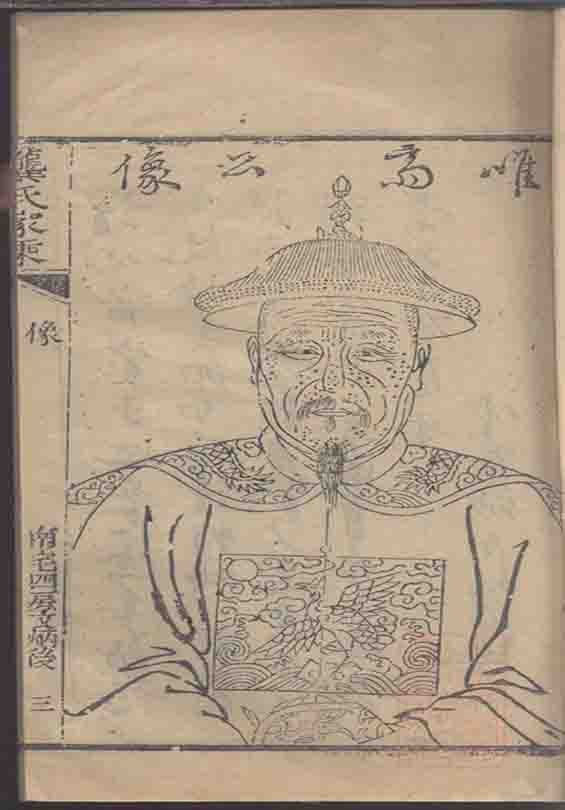 唯高公像
龔氏家乘
像
南宅四房文炳後
三